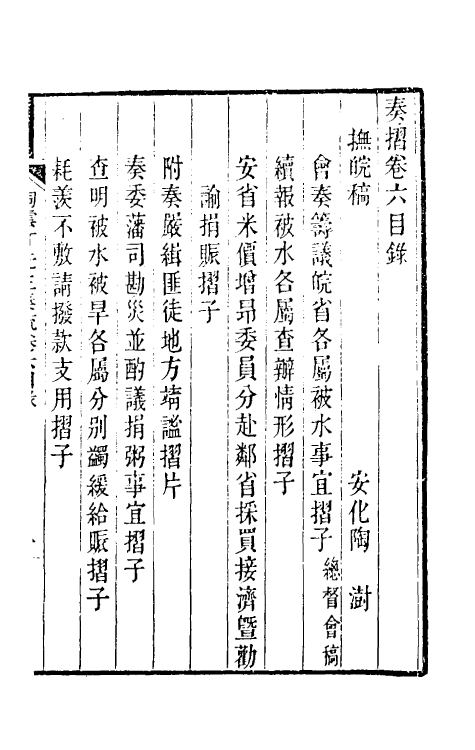 奏摺卷六目錄
撫皖稿　安化陶　澍
會奏籌議皖省各屬被水事宜摺子總督會稿
續報被水各屬查辦情形摺子
安省米價增昂委員分赴鄰省採買接濟暨勸
諭捐賑摺子
附奏嚴緝匪徒地方靖謐摺片
奏委藩司勘災並酌議捐粥事宜摺子
查明被水被旱各屬分別蠲緩給賑摺子
耗羨不敷請撥款支用摺子